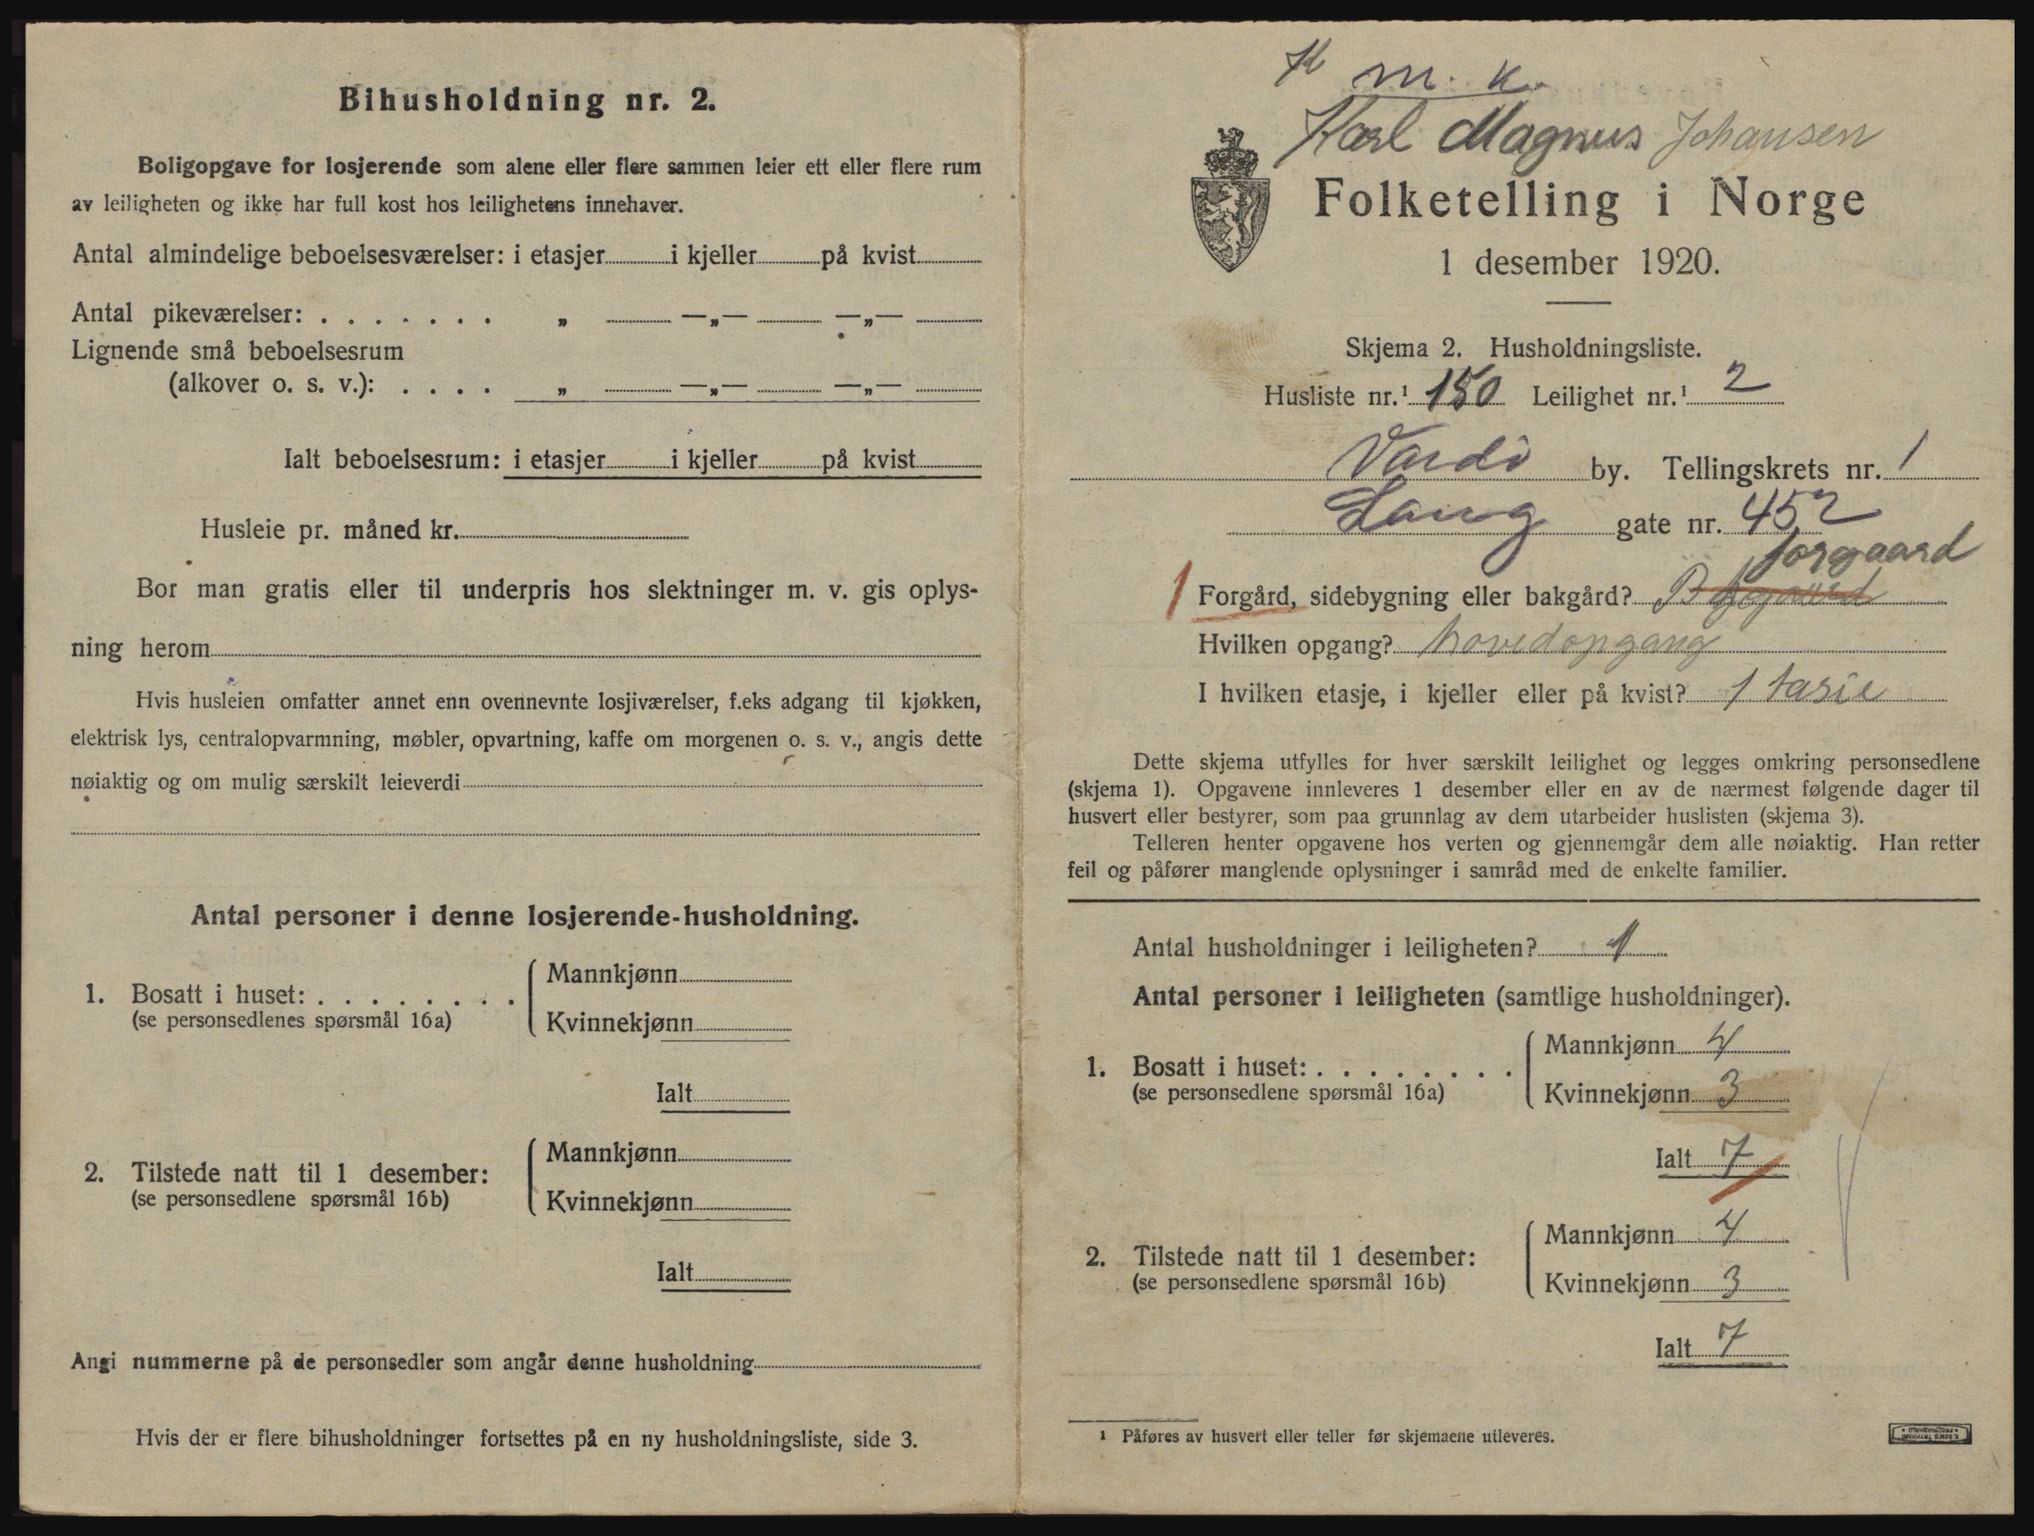 Bihusholdning nr. 2.
Boligopgave for losjerende som alene eller flere sammen leier ett eller flere rum
av leiligheten og ikke har full kost hos leilighetens innehaver.
Antal almindelige beboelsesværelser: i etasjer i kjeller på kvist
Antal pikeværelser: . . . . . . . „ —„— —„—
Lignende små beboelsesrum
(alkover o. s. v.): . . . . „ —„— —„—
Ialt beboelsesrum: i etasjer i kjeller på kvist
Husleie pr. måned kr.
Bor man gratis eller til underpris hos slektninger m. v. gis oplys-
ning herom
Hvis husleien omfatter annet enn ovennevnte losjiværelser, f.eks adgang til kjøkken,
elektrisk lys, centralopvarmning, møbler, opvartning, kaffe om morgenen o. s. v., angis dette
nøiaktig og om mulig særskilt leieverdi
Antal personer i denne losjerende-husholdning.
1. Bosatt i huset: . . . . . . . .
(se personsedlenes spørsmål 16a)
Mannkjønn
Kvinnekjønn
Ialt
2. Tilstede natt til 1 desember:
(se personsedlene spørsmål 16b)
Mannkjønn
Kvinnekjønn
Ialt
Angi nummerne på de personsedler som angår denne husholdning
Hvis der er flere bihusholdninger fortsettes på en ny husholdningsliste, side 3.
K m. K.
Karl Magnus Johansen
Folketelling i Norge
1 desember 1920.
Skjema 2. Husholdningsliste.
Husliste nr.¹ 150 Leilighet nr.¹ 2
Vardö by. Tellingskrets nr. 1
Lang gate nr. 452
forgaard
1 Forgård, sidebygning eller bakgård?
Hvilken opgang? hovedopgang
I hvilken etasje, i kjeller eller på kvist? 1 tasie
Dette skjema utfylles for hver særskilt leilighet og legges omkring personsedlene
(skjema 1). Opgavene innleveres 1 desember eller en av de nærmest følgende dager til
husvert eller bestyrer, som paa grunnlag av dem utarbeider huslisten (skjema 3).
Telleren henter opgavene hos verten og gjennemgår dem alle nøiaktig. Han retter
feil og påfører manglende oplysninger i samråd med de enkelte familier.
Antal husholdninger i leiligheten? 1
Antal personer i leiligheten (samtlige husholdninger).
1. Bosatt i huset: . . . . . . . .
(se personsedlene spørsmål 16a)
Mannkjønn 4
Kvinnekjønn 3
Ialt 7
2. Tilstede natt til 1 desember:
(se personsedlene spørsmål 16b)
Mannkjønn 4
Kvinnekjønn 3
Ialt 7
¹ Påføres av husvert eller teller før skjemaene utleveres.